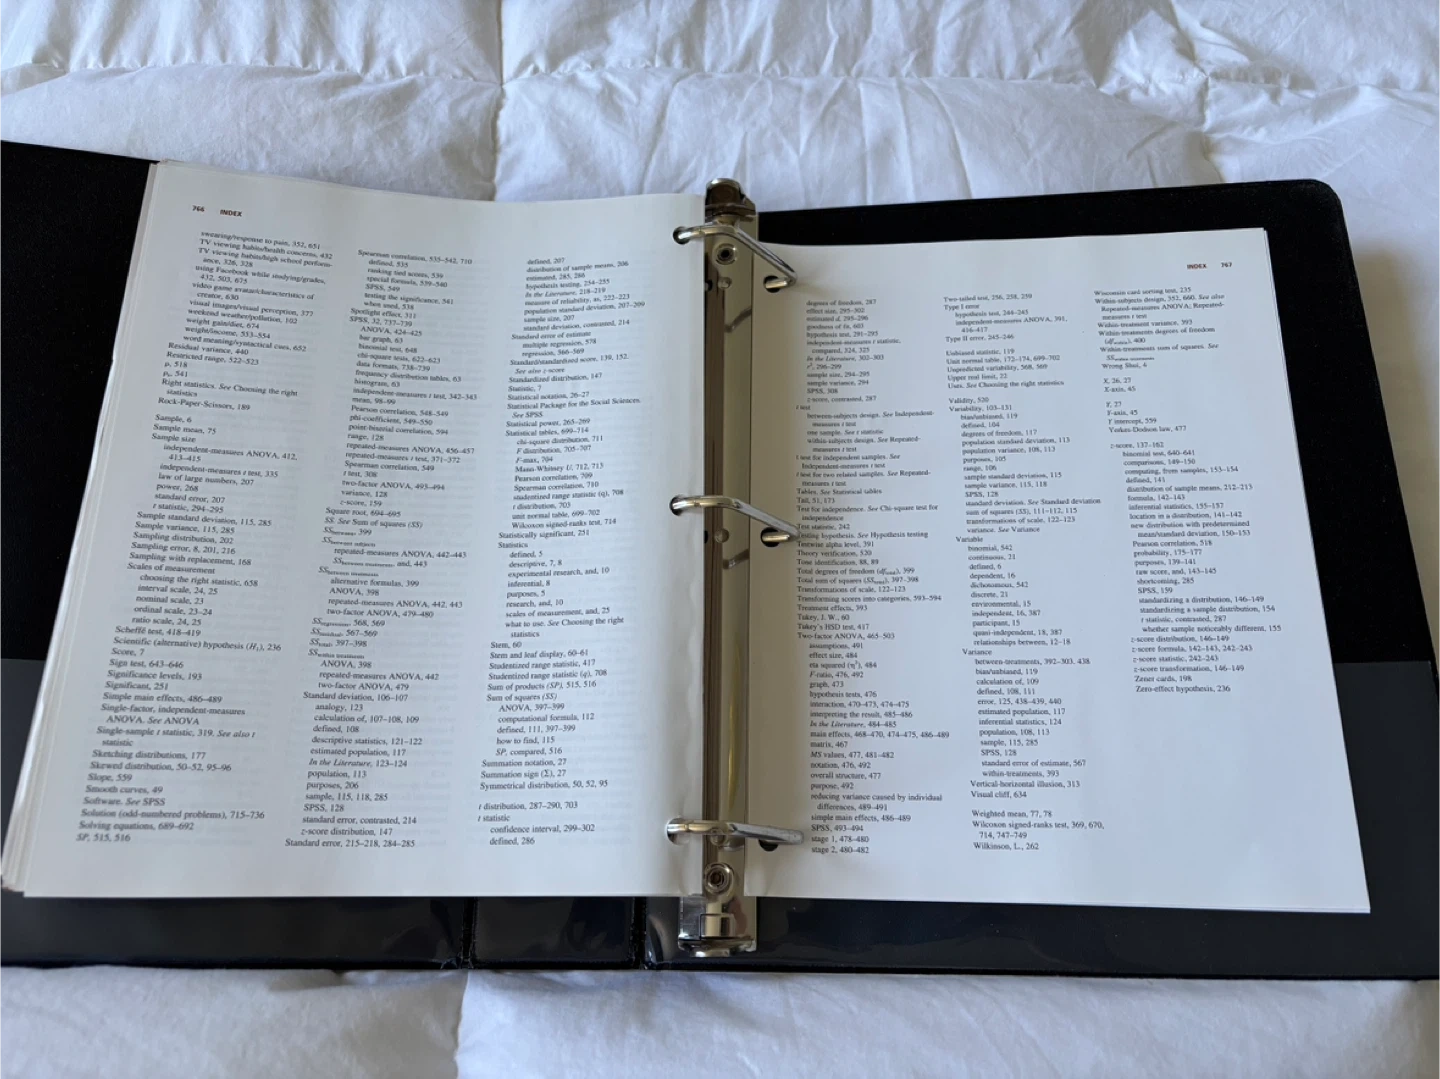 766 INDEX
swearing/response to pain, 352, 651
TV viewing habits/health concerns, 432
TV viewing habits/high school perform-
ance, 326, 328
using Facebook while studying/grades,
432, 503, 675
video game avatar/characteristics of
creator, 630
visual images/visual perception, 377
weekend weather/pollution, 102
weight gain/diet, 674
weight/income, 533–554
word meaning/syntactical cues, 652
Residual variance, 440
Restricted range, 522–523
ρ, 518
541
Right statistics. See Choosing the right
statistics
Rock-Paper-Scissors, 189
Sample, 6
Sample mean, 75
Sample size
independent-measures ANOVA, 412,
413–415
independent-measures t test, 335
law of large numbers, 207
power, 268
standard error, 207
t statistic, 294–295
Sample standard deviation, 115, 285
Sample variance, 115, 285
Sampling distribution, 202
Sampling error, 8, 201, 216
Sampling with replacement, 168
Scales of measurement
choosing the right statistic, 658
interval scale, 24, 25
nominal scale, 23
ordinal scale, 23–24
ratio scale, 24, 25
Scheffé test, 418–419
Scientific (alternative) hypothesis (H₁), 236
Score, 7
Sign test, 643–646
Significance levels, 193
Significant, 251
Simple main effects, 486–489
Single-factor, independent-measures
ANOVA. See ANOVA
Single-sample t statistic, 319. See also t
statistic
Sketching distributions, 177
Skewed distribution, 50–52, 95–96
Slope, 559
Smooth curves, 49
Software. See SPSS
Solution (odd-numbered problems), 715–736
Solving equations, 689–692
SP, 515, 516
Spearman correlation, 535–542, 710
defined, 535
ranking tied scores, 539
special formula, 539–540
SPSS, 549
testing the significance, 541
when used, 534
Spotlight effect, 311
SPSS, 32, 737–739
ANOVA, 424–425
bar graph, 63
binomial test, 648
chi-square tests, 622–623
data formats, 738–739
frequency distribution tables, 63
histogram, 63
independent-measures t test, 342–343
mean, 98–99
Pearson correlation, 548–549
phi-coefficient, 549–550
point-biserial correlation, 594
range, 128
repeated-measures ANOVA, 456–457
repeated-measures t test, 371–372
Spearman correlation, 549
t test, 308
two-factor ANOVA, 493–494
variance, 128
z-score, 159
Square root, 694–695
SS. See Sum of squares (SS)
SSbetween, 399
SSbetween subjects
repeated-measures ANOVA, 442–443
SSbetween treatments, and, 443
SSbetween treatments
alternative formulas, 399
ANOVA, 398
repeated-measures ANOVA, 442, 443
two-factor ANOVA, 479–480
SSregression, 568, 569
SSresidual, 567–569
SStotal, 397–398
SSwithin treatments
ANOVA, 398
repeated-measures ANOVA, 442
two-factor ANOVA, 479
Standard deviation, 106–107
analogy, 123
calculation of, 107–108, 109
defined, 108
descriptive statistics, 121–122
estimated population, 117
In the Literature, 123–124
population, 113
purposes, 206
sample, 115, 118, 285
SPSS, 128
standard error, contrasted, 214
z-score distribution, 147
Standard error, 215–218, 284–285
defined, 207
distribution of sample means, 206
estimated, 285, 286
hypothesis testing, 254–255
In the Literature, 218–219
measure of reliability, as, 222–223
population standard deviation, 207–209
sample size, 207
standard deviation, contrasted, 214
Standard error of estimate
multiple regression, 578
regression, 566–569
Standard/standardized score, 139, 152.
See also z-score
Standardized distribution, 147
Statistic, 7
Statistical notation, 26–27
Statistical Package for the Social Sciences.
See SPSS
Statistical power, 265–269
Statistical tables, 699–714
chi-square distribution, 711
F distribution, 705–707
F-max, 704
Mann-Whitney U, 712, 713
Pearson correlation, 709
Spearman correlation, 710
studentized range statistic (q), 708
t distribution, 703
unit normal table, 699–702
Wilcoxon signed-ranks test, 714
Statistically significant, 251
Statistics
defined, 5
descriptive, 7, 8
experimental research, and, 10
inferential, 8
purposes, 5
research, and, 10
scales of measurement, and, 25
what to use. See Choosing the right
statistics
Stem, 60
Stem and leaf display, 60–61
Studentized range statistic, 417
Studentized range statistic (q), 708
Sum of products (SP), 515, 516
Sum of squares (SS)
ANOVA, 397–399
computational formula, 112
defined, 111, 397–399
how to find, 115
SP, compared, 516
Summation notation, 27
Summation sign (Σ), 27
Symmetrical distribution, 50, 52, 95
t distribution, 287–290, 703
t statistic
confidence interval, 299–302
defined, 286
INDEX 767
degrees of freedom, 287
effect size, 295–302
estimated d, 295–296
goodness of fit, 603
hypothesis test, 291–293
independent-measures t statistic,
compared, 324, 325
In the Literature, 302–303
r², 296–299
sample size, 294–295
sample variance, 294
SPSS, 308
z-score, contrasted, 287
t test
between-subjects design. See Independent-
measures t test
one sample. See t statistic
within-subjects design. See Repeated-
measures t test
t test for independent samples. See
Independent-measures t test
t test for two related samples. See Repeated-
measures t test
Tables. See Statistical tables
Tail, 51, 171
Test for independence. See Chi-square test for
independence
Test statistic, 242
Testing hypothesis. See Hypothesis testing
Testwise alpha level, 391
Theory verification, 520
Tone identification, 88, 89
Total degrees of freedom (dftotal), 399
Total sum of squares (SStotal), 397–398
Transformations of scale, 122–123
Transforming scores into categories, 593–594
Treatment effects, 393
Tukey, J. W., 60
Tukey's HSD test, 417
Two-factor ANOVA, 465–503
assumptions, 491
effect size, 484
eta squared (η²), 484
F-ratio, 476, 492
graph, 473
hypothesis tests, 476
interaction, 470–473, 474–475
interpreting the result, 485–486
In the Literature, 484–485
main effects, 468–470, 474–475, 486–489
matrix, 467
MS values, 477, 481–482
notation, 476, 492
overall structure, 477
purpose, 492
reducing variance caused by individual
differences, 489–491
simple main effects, 486–489
SPSS, 493–494
stage 1, 478–480
stage 2, 480–482
Two-tailed test, 256, 258, 259
Type I error
hypothesis test, 244–245
independent-measures ANOVA, 391,
416–417
Type II error, 245–246
Unbiased statistic, 119
Unit normal table, 172–174, 699–702
Unpredicted variability, 568, 569
Upper real limit, 22
Uses. See Choosing the right statistics
Validity, 520
Variability, 103–131
bias/unbiased, 119
defined, 104
degrees of freedom, 117
population standard deviation, 113
population variance, 108, 113
purposes, 105
range, 106
sample standard deviation, 115
sample variance, 115, 118
SPSS, 128
standard deviation. See Standard deviation
sum of squares (SS), 111–112, 115
transformations of scale, 122–123
variance. See Variance
Variable
binomial, 542
continuous, 21
defined, 6
dependent, 16
dichotomous, 542
discrete, 21
environmental, 15
independent, 16, 387
participant, 15
quasi-independent, 18, 387
relationships between, 12–18
Variance
between-treatments, 392–303, 438
bias/unbiased, 119
calculation of, 109
defined, 108, 111
error, 125, 438–439, 440
estimated population, 117
inferential statistics, 124
population, 108, 113
sample, 115, 285
SPSS, 128
standard error of estimate, 567
within-treatments, 393
Vertical-horizontal illusion, 313
Visual cliff, 634
Weighted mean, 77, 78
Wilcoxon signed-ranks test, 369, 670,
714, 747–749
Wilkinson, L., 262
Wisconsin card sorting test, 235
Within-subjects design, 352, 660. See also
Repeated-measures ANOVA; Repeated-
measures t test
Within-treatment variance, 393
Within-treatments degrees of freedom
(dfwithin), 400
Within-treatments sum of squares. See
SSwithin treatments
Wrong Shui, 4
X, 26, 27
X-axis, 45
Y, 27
Y-axis, 45
Y intercept, 559
Yerkes-Dodson law, 477
z-score, 137–162
binomial test, 640–641
comparisons, 149–150
computing, from samples, 153–154
defined, 141
distribution of sample means, 212–213
formula, 142–143
inferential statistics, 155–157
location in a distribution, 141–142
new distribution with predetermined
mean/standard deviation, 150–153
Pearson correlation, 518
probability, 175–177
purposes, 139–141
raw score, and, 143–145
shortcoming, 285
SPSS, 159
standardizing a distribution, 146–149
standardizing a sample distribution, 154
t statistic, contrasted, 287
whether sample noticeably different, 155
z-score distribution, 146–149
z-score formula, 142–143, 242–243
z-score statistic, 242–243
z-score transformation, 146–149
Zener cards, 198
Zero-effect hypothesis, 236